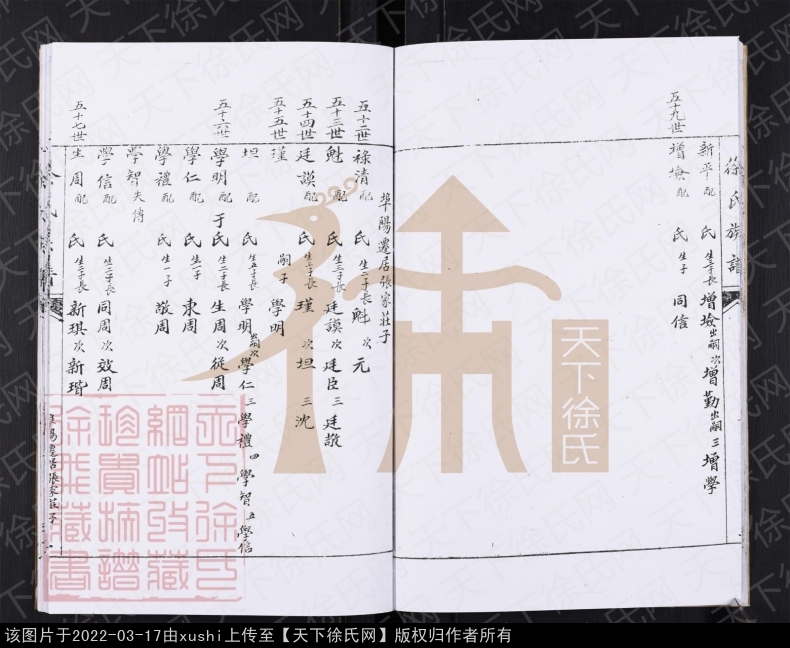 徐氏族譜
五十九世
新平 配 氏 生三子長 增墩 出嗣 次 增勤 出嗣 三 增學
增墩 配 氏 生子 同信
埠陽遷居張家莊子
五十二世
祿清 配 氏 生二子長 魁 次 元
五十三世
魁 配 氏 生三子長 廷謨 次 廷臣 三 廷敬
五十四世
廷謨 配 氏 生三子長 瑾 次 坦 三 沈
五十五世
瑾 嗣子 學明
坦 配 氏 生五子長 學明 出嗣 次 學仁 三 學禮 四 學智 五 學信
五十六世
學明 配 于氏 生二子長 生周 次 從周
學仁 配 氏 生一子 東周
學禮 配 氏 生一子 敬周
學智 失傳
學信 配 氏 生二子長 同周 次 效周
五十七世
生周 配 氏 生二子長 新琪 次 新瑎
埠陽遷居張家莊子
天下徐氏
天下徐氏網站收藏珍貴摘譜徐飛藏書
天下徐氏网
该图片于2022-03-17由xushi上传至【天下徐氏网】版权归作者所有